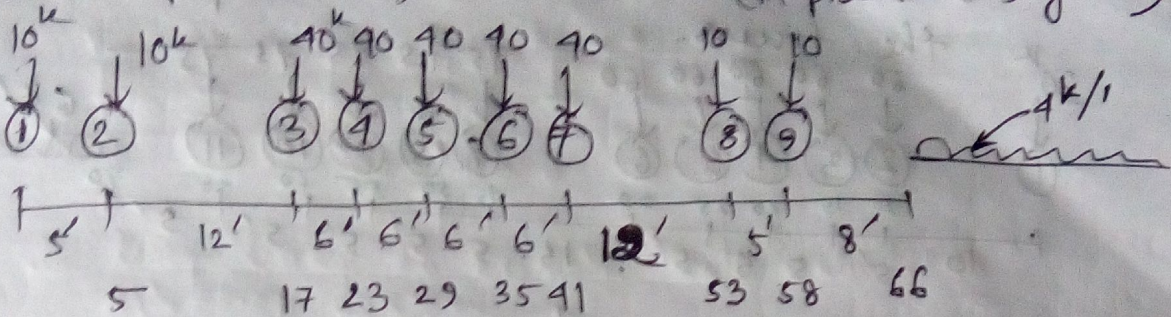 10k 10k 40k 40 40 40 40 10 10
4k/'
1 2 3 4 5 6 7 8 9
5' 12' 6' 6' 6' 6' 12' 5' 8'
5 17 23 29 35 41 53 58 66